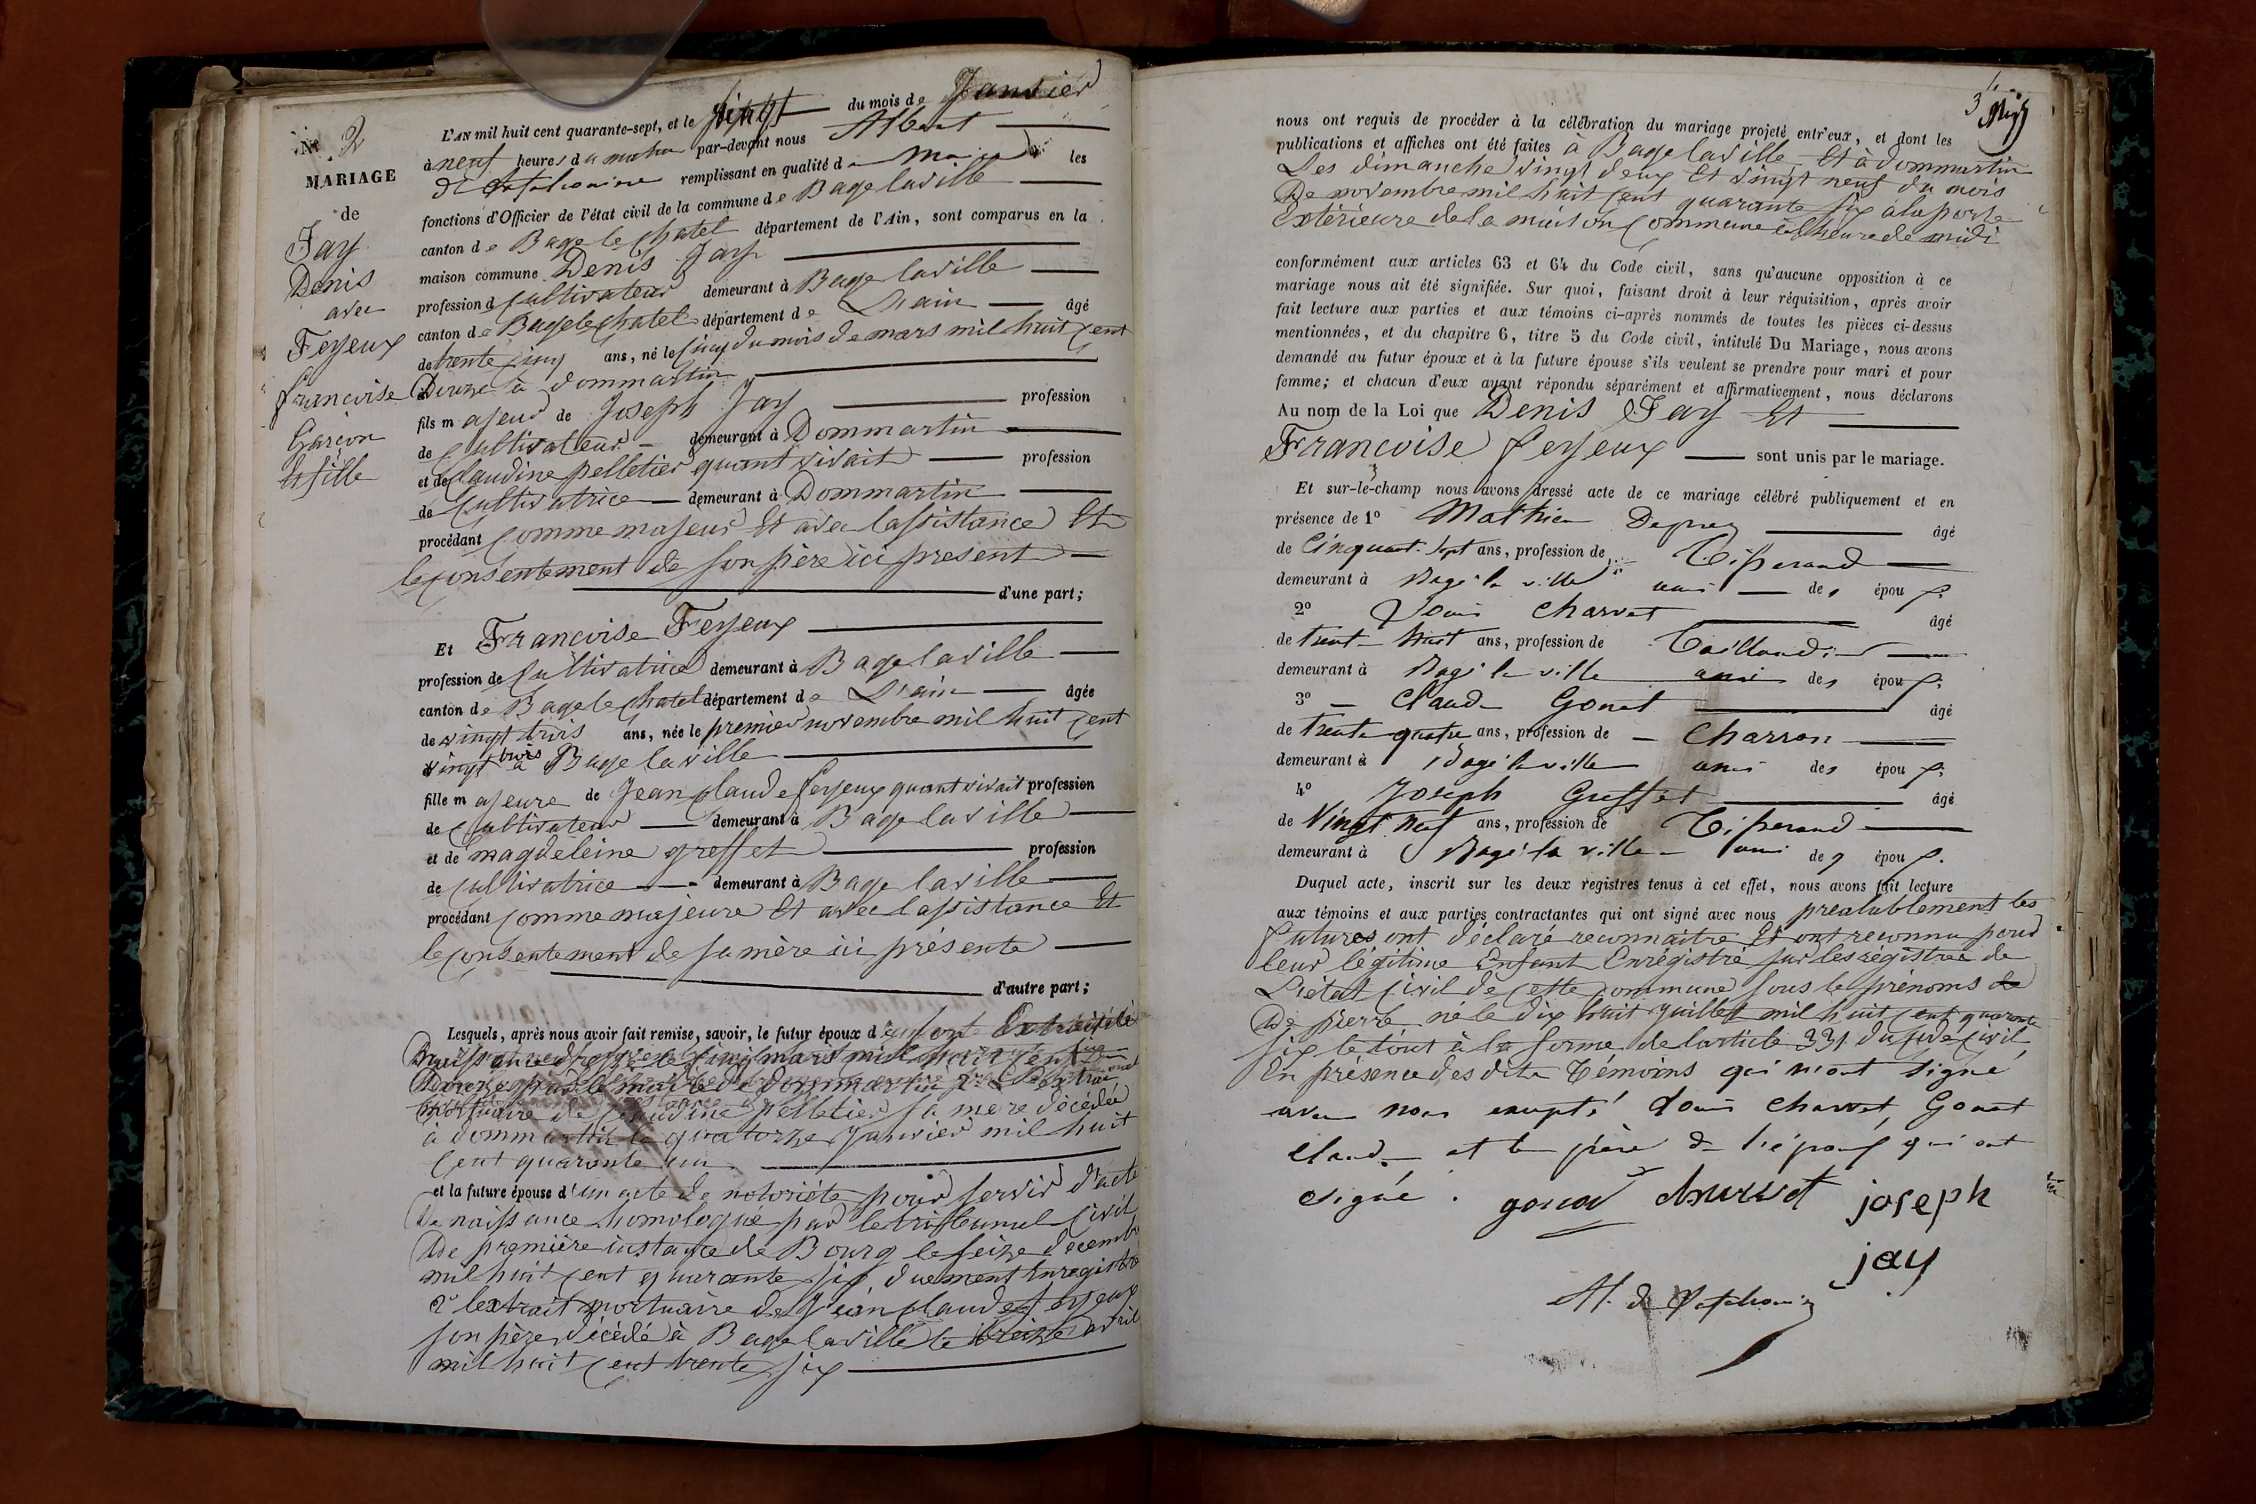 N.° 2
MARIAGE
de
Jay
Denis
avec
Feyeux
francoise
Garçon
et fille
L'AN mil huit cent quarante-sept, et le sept du mois de Janvier
à neuf heures du matin par-devant nous Albert
de Catalhouine remplissant en qualité de Maire les
fonctions d'Officier de l'état civil de la commune de Bage laville
canton de Bage le chatel département de l'Ain, sont comparus en la
maison commune Denis Jay
profession de Cultivateur demeurant à Bage laville
canton de Bage le chatel département de Lnain âgé
de trente cinq ans, né le cinq du mois de mars mil huit cent
Douze à dommartin
fils majeur de Joseph Jay profession
de Cultivateur demeurant à Dommartin
et de Claudine pelletier quant vivait profession
de Cultivatrice demeurant à Dommartin
procédant comme majeur Et avec lassistance Et
le consentement de son père ici present
d'une part;
Et Francoise Feyeux
profession de Cultivatrice demeurant à Bage laville
canton de Bage le chatel département de L'ain âgée
de vingt trois ans, née le premier novembre mil huit cent
vingt trois à Bage laville
fille majeure de Jean claude feyeux quant vivait profession
de Cultivateur demeurant à Bage laville
et de magdeleine greffet profession
de cultivatrice demeurant à Bage laville
procédant comme majeure Et avec lassistance Et
le consentement de sa mère ici présente
d'autre part;
Lesquels, après nous avoir fait remise, savoir, le futur époux d
Naissance mars mil
Douze par le maire de dommartin
mortuaire de Claudine pelletier sa mere décédée
à dommartin le quatorze Janvier mil huit
cent quarante un
et la future épouse d'un acte de notoriété pour servir d'acte
De naissance homologué par le tribunal civil
De première instance de Bourg le seize decembre
mil huit cent quarante six, duement Enregistré
2° lextrait mortuaire de Jean claude feyeux
son père décédé à Bage laville le treize avril
mil huit cent trente six
3
nous ont requis de procéder à la célébration du mariage projeté entr'eux, et dont les
publications et affiches ont été faites à Bage laville Et à dommartin
Les dimanche vingt deux Et vingt neuf du mois
De novembre mil huit cent quarante six à la porte
extérieure de la maison commune à l'heure de midi
conformément aux articles 63 et 64 du Code civil, sans qu'aucune opposition à ce
mariage nous ait été signifiée. Sur quoi, faisant droit à leur réquisition, après avoir
fait lecture aux parties et aux témoins ci-après nommés de toutes les pièces ci-dessus
mentionnées, et du chapitre 6, titre 5 du Code civil, intitulé Du Mariage, nous avons
demandé au futur époux et à la future épouse s'ils veulent se prendre pour mari et pour
femme; et chacun d'eux ayant répondu séparément et affirmativement, nous déclarons
Au nom de la Loi que Denis Jay Et
Francoise feyeux sont unis par le mariage.
Et sur-le-champ nous avons dressé acte de ce mariage célébré publiquement et en
présence de 1° Mathieu Deprez âgé
de Cinquante sept ans, profession de Tisserand
demeurant à Bagé la ville ami des époux
2° Louis Charvet âgé
de trente huit ans, profession de Taillandier
demeurant à Bagé la ville ami des époux
3° Claude Gonat âgé
de trente quatre ans, profession de Charron
demeurant à Bagé la ville ami des époux
4° Joseph Greffet âgé
de Vingt neuf ans, profession de Tisserand
demeurant à Bagé la ville ami des époux
Duquel acte, inscrit sur les deux registres tenus à cet effet, nous avons fait lecture
aux témoins et aux parties contractantes qui ont signé avec nous prealablement les
futures ont déclaré reconnaitre Et ont reconnu pour
leur légitime Enfant Enrégistré sur les régistres de
L'état civil de cette commune sous le prénoms de
De pierre né le dix huit juillet mil huit cent quarante
six le tout à la forme de larticle 331 du code civil
En présence des dits Témoins qui n'ont signé
avec nous excepté Louis Charvet, Gonat
Claude et le père de l'époux qui ont
signé.
gonat charvet joseph
jay